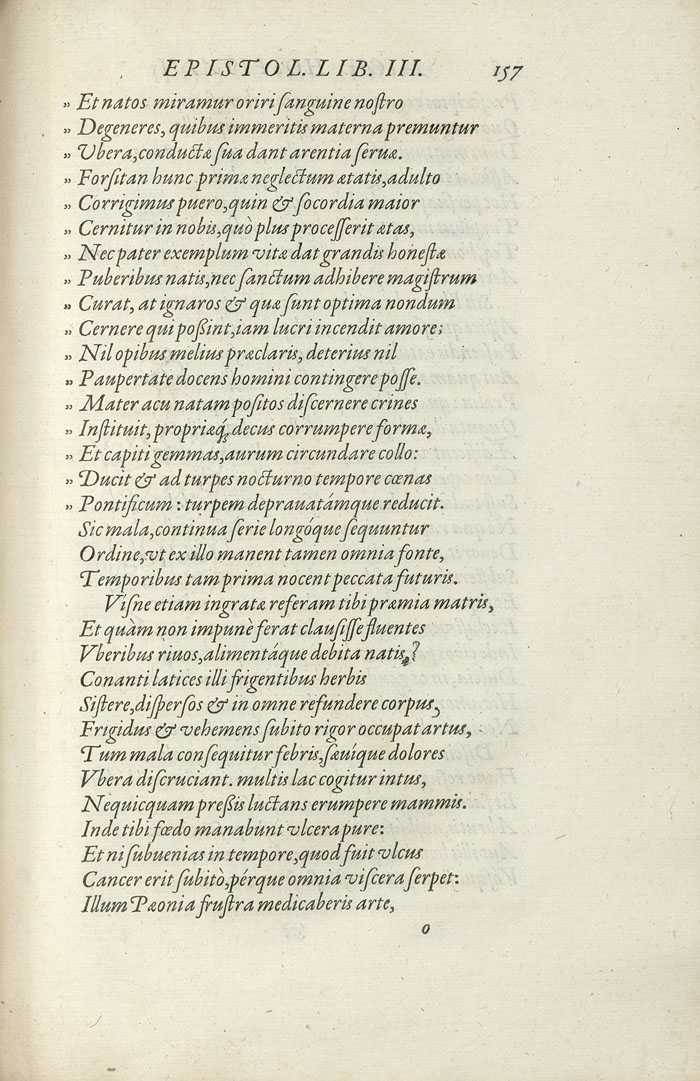 EPISTOL. LIB. III. 157
„ Et natos miramur oriri ſanguine noſtro
„ Degeneres, quibus immeritis materna premuntur
„ Vbera, conductæ ſua dant arentia ſeruæ.
„ Forſitan hunc primæ neglectum ætatis, adulto
„ Corrigimus puero, quin & ſocordia maior
„ Cernitur in nobis, quò plus proceſſerit ætas,
„ Nec pater exemplum vitæ dat grandis honeſtæ
„ Puberibus natis, nec ſanctum adhibere magiſtrum
„ Curat, at ignaros & quæ ſunt optima nondum
„ Cernere qui poßint, iam lucri incendit amore:
„ Nil opibus melius præclaris, deterius nil
„ Paupertate docens homini contingere poſſe.
„ Mater acu natam poſitos diſcernere crines
„ Inſtituit, propriæq́; decus corrumpere formæ,
„ Et capiti gemmas, aurum circundare collo:
„ Ducit & ad turpes nocturno tempore cœnas
„ Pontificum : turpem deprauatámque reducit.
Sic mala, continua ſerie longóque ſequuntur
Ordine, vt ex illo manent tamen omnia fonte,
Temporibus tam prima nocent peccata futuris.
Viſne etiam ingratæ referam tibi præmia matris,
Et quàm non impunè ferat clauſiſſe fluentes
Vberibus riuos, alimentáque debita natis?
Conanti latices illi frigentibus herbis
Siſtere, diſperſos & in omne refundere corpus,
Frigidus & vehemens ſubito rigor occupat artus,
Tum mala conſequitur febris, ſæuíque dolores
Vbera diſcruciant. multis lac cogitur intus,
Nequicquam preßis luctans erumpere mammis.
Inde tibi fœdo manabunt vlcera pure:
Et ni ſubuenias in tempore, quod fuit vlcus
Cancer erit ſubitò, pérque omnia viſcera ſerpet:
Illum Pæonia fruſtra medicaberis arte,
o